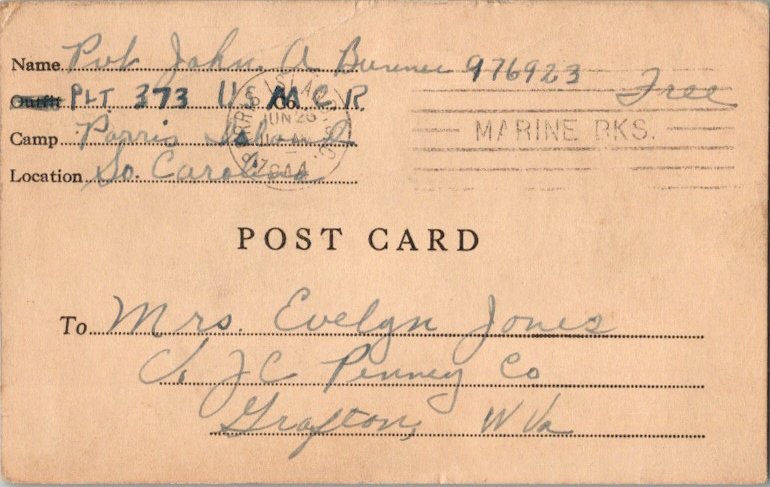 Name Pvt John A 976923
Outfit PLT 373 USMCR Free
Camp Parris Island
Location So. Carolina
JUN 26
MARINE BKS.
POST CARD
To Mrs. Evelyn Jones
C/o JC Penney Co
Grafton, W Va